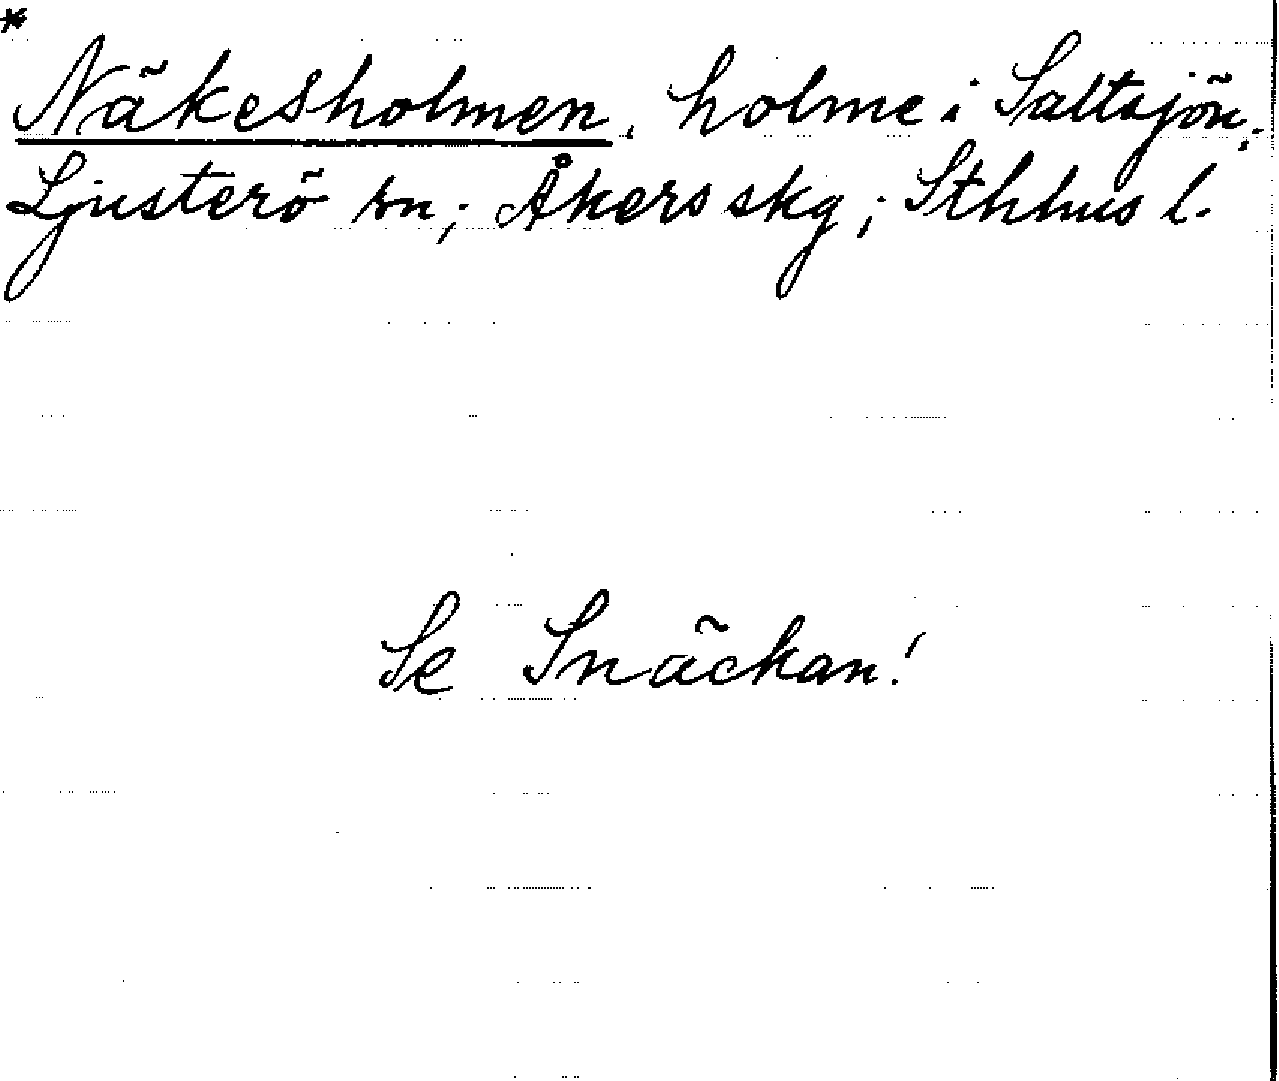 *
Näkesholmen, holme i Saltsjön;
Ljusterö sn; Åkers skg; Sthlms l.
Se Snäckan!